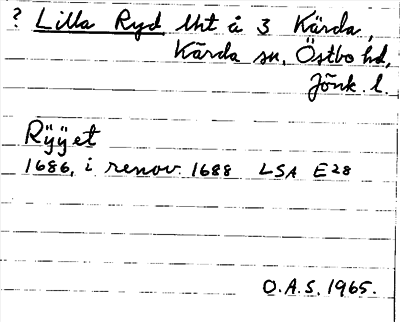 ? Lilla Ryd lht å 3 Kärda,
Kärda sn, Östbo hd,
Jönk. l.
Rÿÿet
1686, i renov. 1688 LSA E28
O.A.S. 1965.